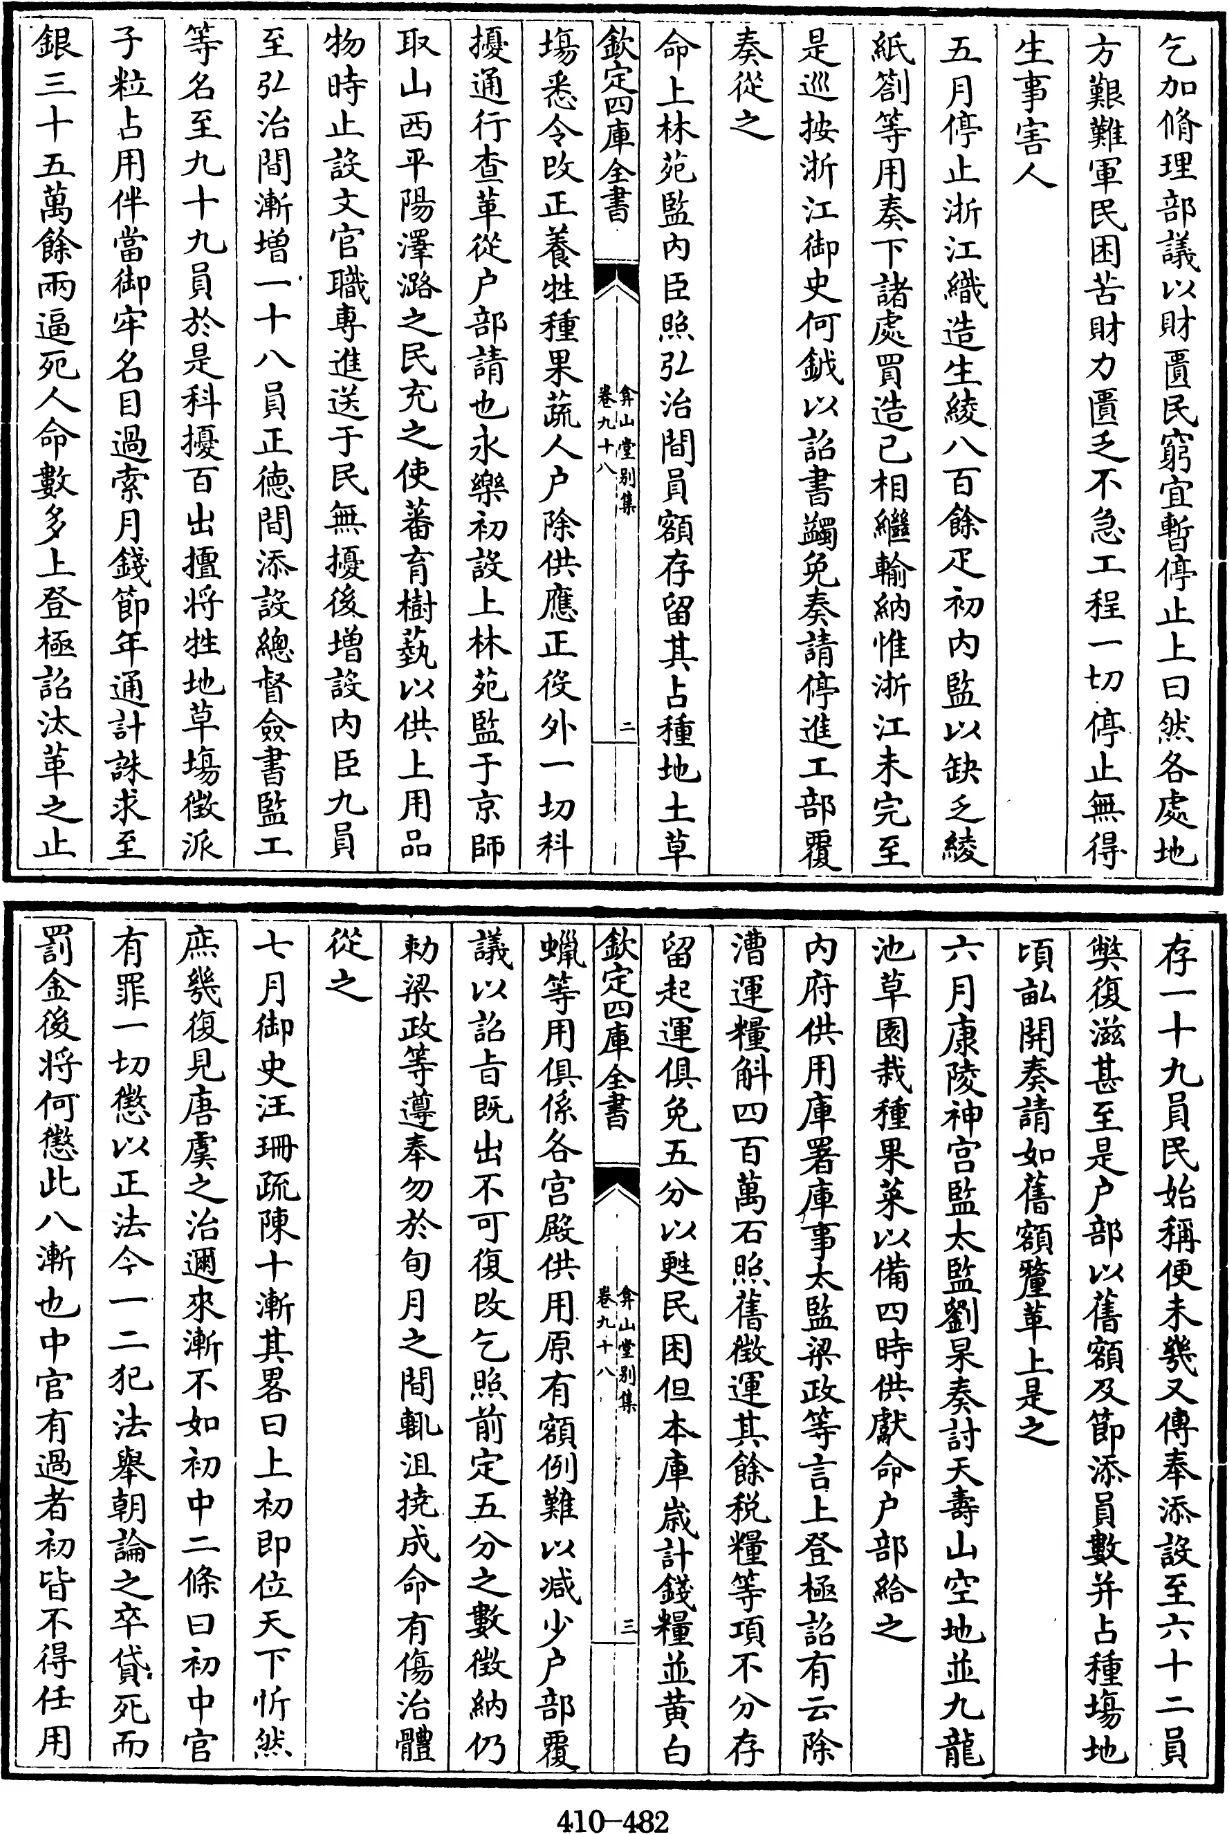 乞加脩理部議以財匱民窮宜暫停止上曰然各處地
方艱難軍民困苦財力匱乏不急工程一切停止無得
生事害人
五月停止浙江織造生綾八百餘疋初内監以缺乏綾
紙劄等用奏下諸處買造已相繼輸納惟浙江未完至
是巡按浙江御史何鉞以詔書蠲免奏請停進工部覆
奏從之
命上林苑監内臣照弘治間員額存留其占種地土草
欽定四庫全書
弇山堂别集
卷九十八
二
塲悉令改正養牲種果蔬人户除供應正役外一切科
擾通行查革從户部請也永樂初設上林苑監于京師
取山西平陽澤潞之民充之使蕃育樹藝以供上用品
物時止設文官職專進送于民無擾後增設内臣九員
至弘治間漸增一十八員正德間添設總督僉書監工
等名至九十九員於是科擾百出擅將牲地草塲徵派
子粒占用伴當御牢名目過索月錢節年通計誅求至
銀三十五萬餘兩逼死人命數多上登極詔汰革之止
存一十九員民始稱便未幾又傳奉添設至六十二員
弊復滋甚至是户部以舊額及節添員數并占種塲地
頃畝開奏請如舊額釐革上是之
六月康陵神宫監太監劉杲奏討天壽山空地並九龍
池草園栽種果菜以備四時供獻命户部給之
内府供用庫署庫事太監梁政等言上登極詔有云除
漕運糧斛四百萬石照舊徵運其餘税糧等項不分存
留起運俱免五分以甦民困但本庫歳計錢糧並黄白
欽定四庫全書
弇山堂别集
卷九十八
三
蠟等用俱係各宫殿供用原有額例難以减少户部覆
議以詔旨既出不可復改乞照前定五分之數徵納仍
勅梁政等遵奉勿於旬月之間輒沮撓成命有傷治體
從之
七月御史汪珊疏陳十漸其畧曰上初即位天下忻然
庶幾復見唐虞之治邇來漸不如初中二條曰初中官
有罪一切懲以正法今一二犯法舉朝論之卒貸死而
罰金後將何懲此八漸也中官有過者初皆不得任用
410-482